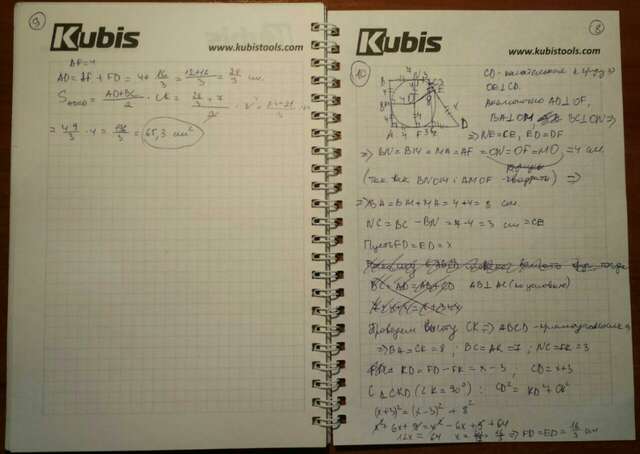 9
Kubis
www.kubistools.com
AF=4
AD = AF + FD = 4 + 16/3 = (12+16)/3 = 28/3 см.
S = (AD+BC)/2 · CK =
= 49/3 · 4 = 196/3 = 65,3 см²
8
Kubis
www.kubistools.com
10
CD - касательная к кругу
OE⊥CD.
Аналогично AD⊥OF,
BA⊥OM BC⊥ON =>
=> NE=CE, ED=DF
=> BN=BM=MA=AF=ON=OF=MO =4 см.
(так как BNOM и AMOF - квадраты) =>
=> BA=BM+MA=4+4=8 см
NC = BC - BN = 7-4 = 3 см = CE
Пусть FD=ED=x
BC= AD= AB⊥AC (по условию)
Проведем высоту CK => ABCD -
=> BA=CK=8; BC=AK=7; NC=FK=3
KD = FD-FK = x-3; CD=x+3
С △CKD (∠K=90°): CD²= KD²+CK²
(x+3)²=(x-3)²+8²
x²+6x+9=x²-6x+9+64
12x = 64 x = 16/3 => FD=ED=16/3 см